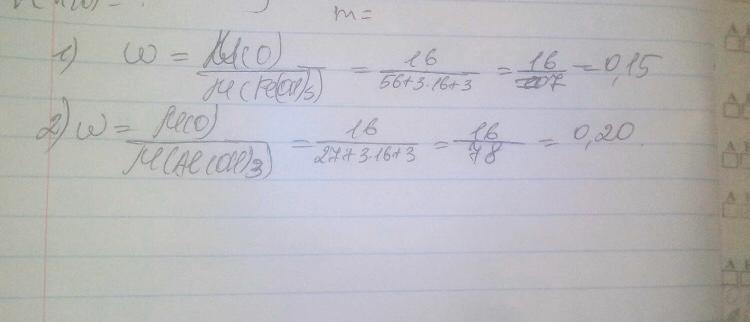 m =
1) ω = M(O) / M(Fe(OH)3) = 16 / 56+3·16+3 = 16 / 107 = 0,15
2) ω = M(O) / M(Al(OH)3) = 16 / 27+3·16+3 = 16 / 78 = 0,20